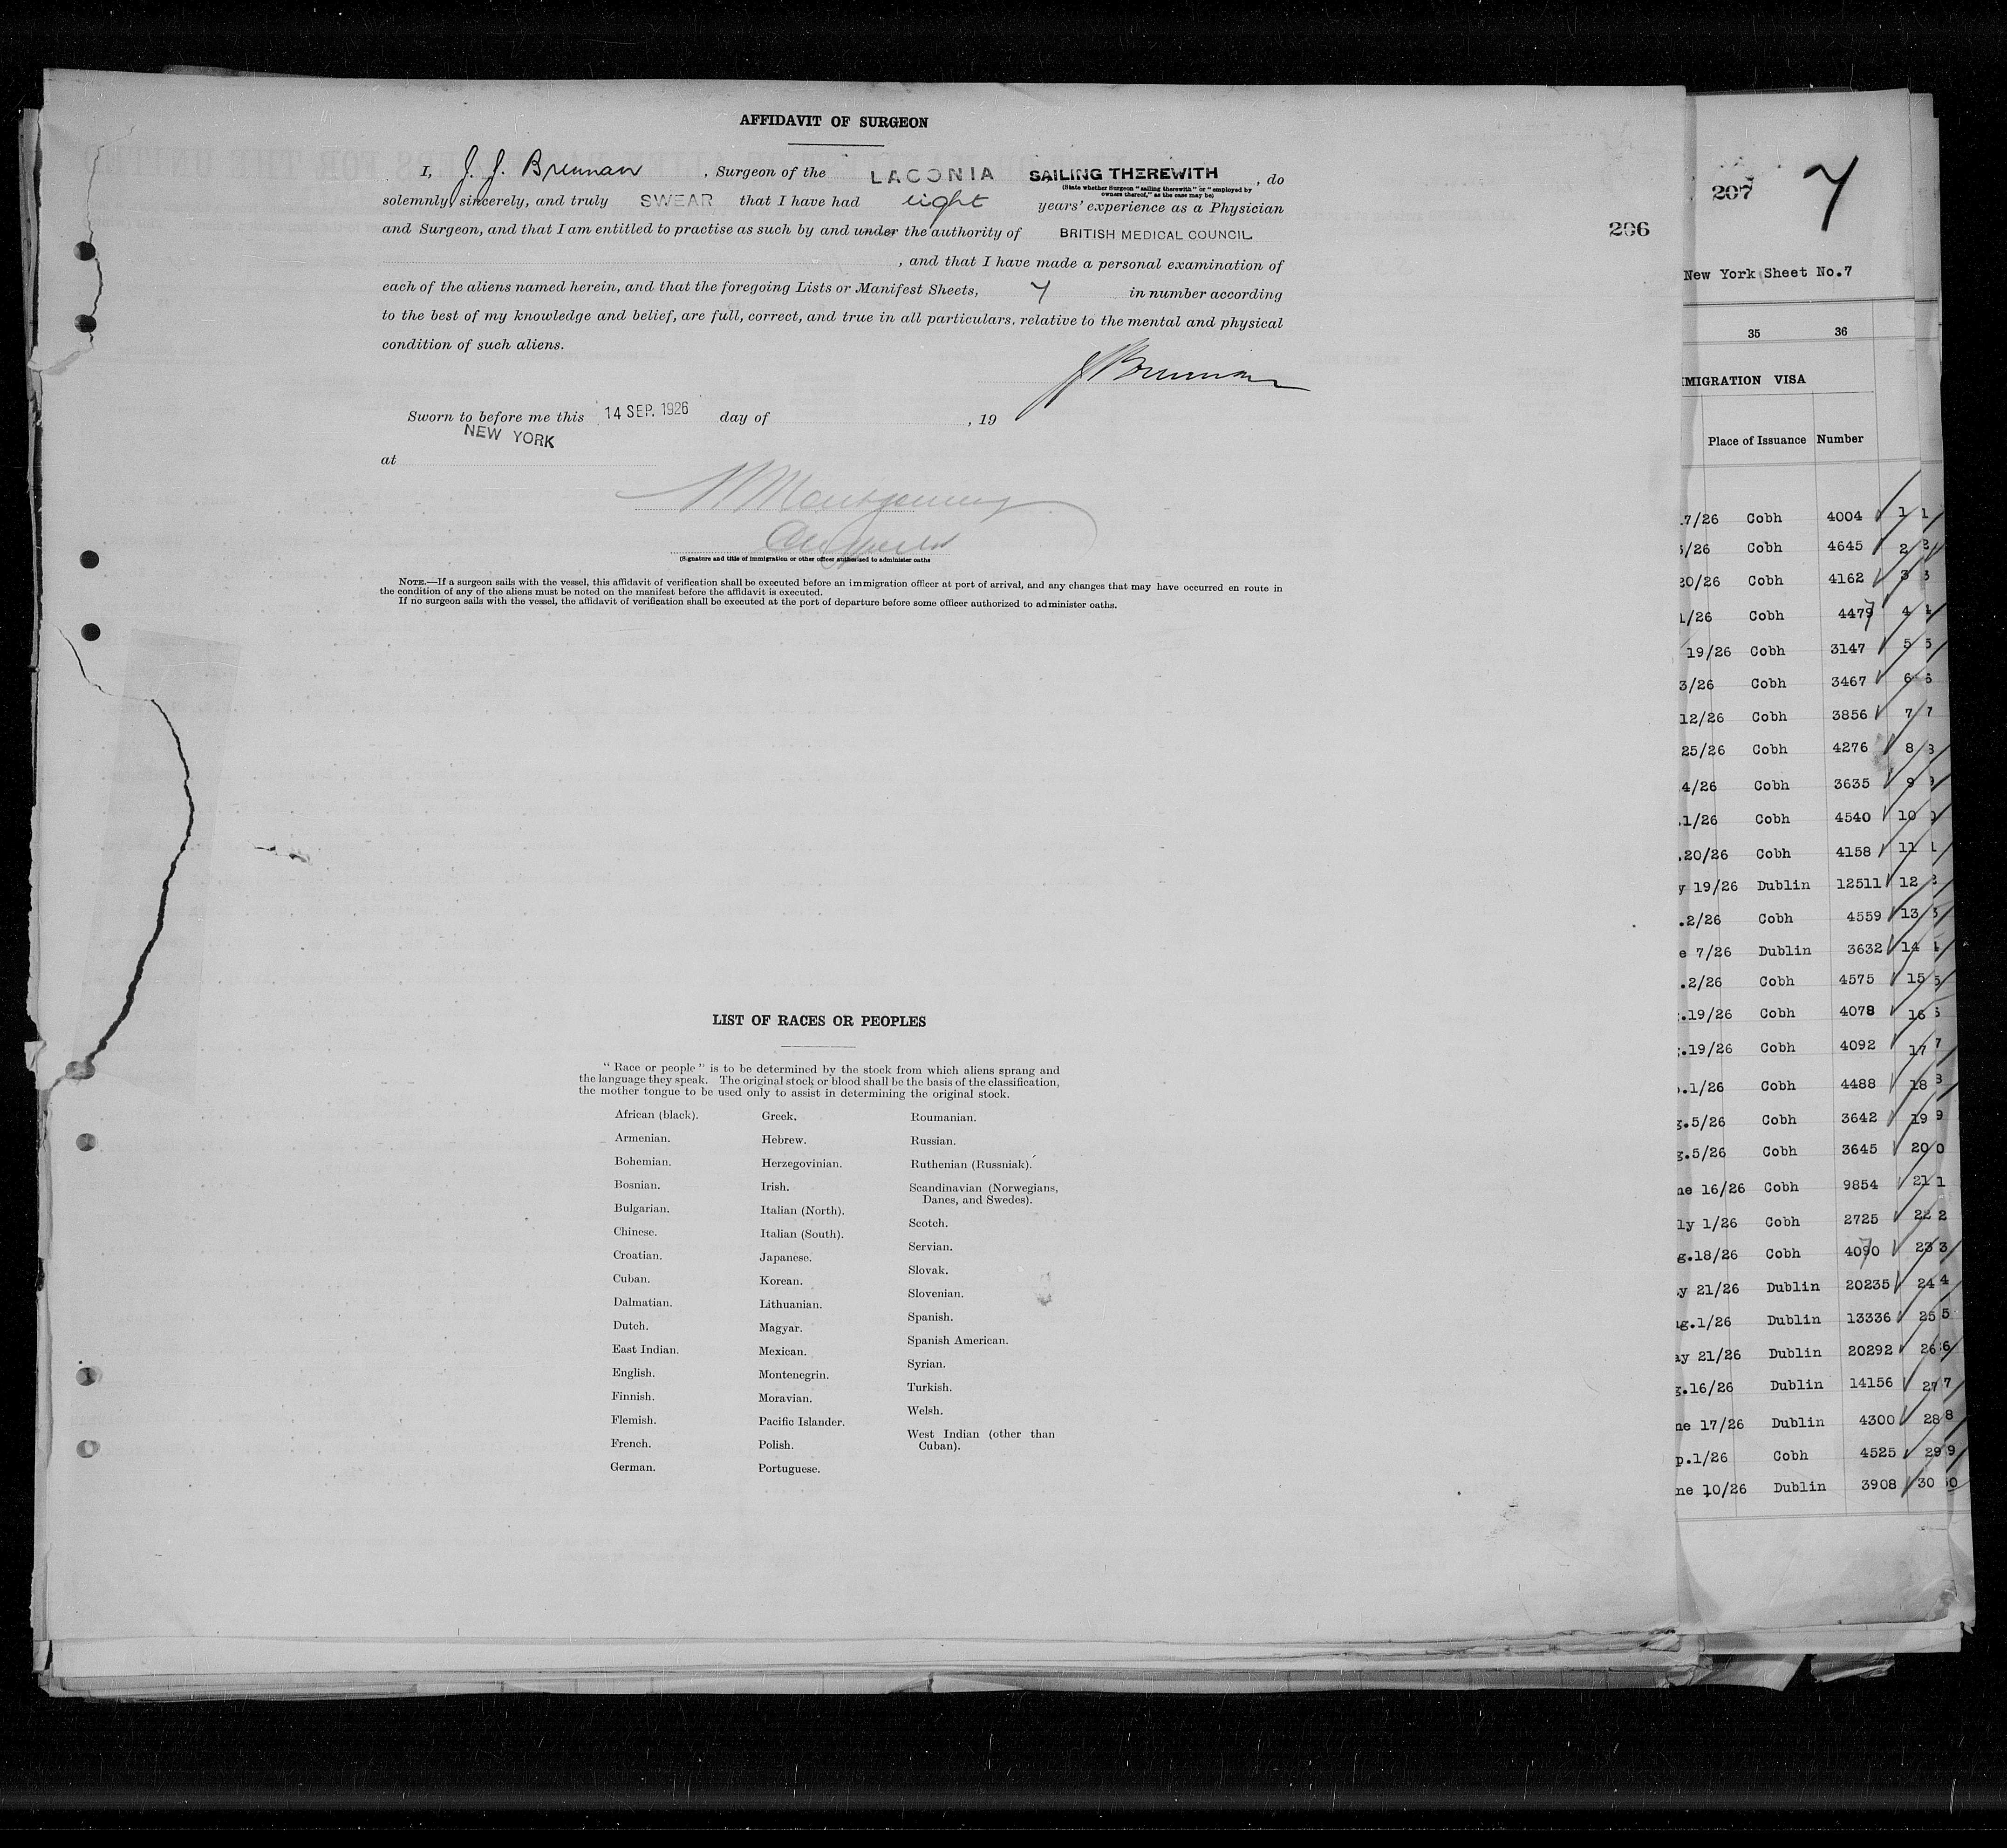 AFFIDAVIT OF SURGEON
I, J. J. Brennan, Surgeon of the LACONIA SAILING THEREWITH, do
(State whether Surgeon "sailing therewith" or "employed by
owners thereof," as the case may be)
solemnly, sincerely, and truly SWEAR that I have had eight years' experience as a Physician
and Surgeon, and that I am entitled to practise as such by and under the authority of BRITISH MEDICAL COUNCIL
, and that I have made a personal examination of
each of the aliens named herein, and that the foregoing Lists or Manifest Sheets, 7 in number according
to the best of my knowledge and belief, are full, correct, and true in all particulars, relative to the mental and physical
condition of such aliens.
J J Brennan
Sworn to before me this 14 SEP. 1926 day of , 19
at NEW YORK
Montgomery
(Signature and title of immigration or other officer authorised to administer oaths
NOTE.—If a surgeon sails with the vessel, this affidavit of verification shall be executed before an immigration officer at port of arrival, and any changes that may have occurred en route in
the condition of any of the aliens must be noted on the manifest before the affidavit is executed.
If no surgeon sails with the vessel, the affidavit of verification shall be executed at the port of departure before some officer authorized to administer oaths.
206
LIST OF RACES OR PEOPLES
"Race or people" is to be determined by the stock from which aliens sprang and
the language they speak. The original stock or blood shall be the basis of the classification,
the mother tongue to be used only to assist in determining the original stock.
African (black).
Armenian.
Bohemian.
Bosnian.
Bulgarian.
Chinese.
Croatian.
Cuban.
Dalmatian.
Dutch.
East Indian.
English.
Finnish.
Flemish.
French.
German.
Greek.
Hebrew.
Herzegovinian.
Irish.
Italian (North).
Italian (South).
Japanese.
Korean.
Lithuanian.
Magyar.
Mexican.
Montenegrin.
Moravian.
Pacific Islander.
Polish.
Portuguese.
Roumanian.
Russian.
Ruthenian (Russniak).
Scandinavian (Norwegians,
Danes, and Swedes).
Scotch.
Servian.
Slovak.
Slovenian.
Spanish.
Spanish American.
Syrian.
Turkish.
Welsh.
West Indian (other than
Cuban).
207 7
New York Sheet No.7
35 36
MIGRATION VISA
Place of Issuance Number
17/26 Cobh 4004 1 1
5/26 Cobh 4645 2 2
20/26 Cobh 4162 3 3
1/26 Cobh 4479 4 4
19/26 Cobh 3147 5 5
3/26 Cobh 3467 6 6
12/26 Cobh 3856 7 7
25/26 Cobh 4276 8 8
4/26 Cobh 3635 9 9
.1/26 Cobh 4540 10 0
.20/26 Cobh 4158 11 1
y 19/26 Dublin 12511 12 2
.2/26 Cobh 4559 13 3
e 7/26 Dublin 3632 14 4
.2/26 Cobh 4575 15 5
.19/26 Cobh 4078 16 6
.19/26 Cobh 4092 17 7
.1/26 Cobh 4488 18 8
g.5/26 Cobh 3642 19 9
g.5/26 Cobh 3645 20 0
ne 16/26 Cobh 9854 21 1
ly 1/26 Cobh 2725 22 2
g.18/26 Cobh 4090 23 3
y 21/26 Dublin 20235 24 4
ug.1/26 Dublin 13336 25 5
ay 21/26 Dublin 20292 26 6
g.16/26 Dublin 14156 27 7
ne 17/26 Dublin 4300 28 8
p.1/26 Cobh 4525 29 9
ne 10/26 Dublin 3908 30 0